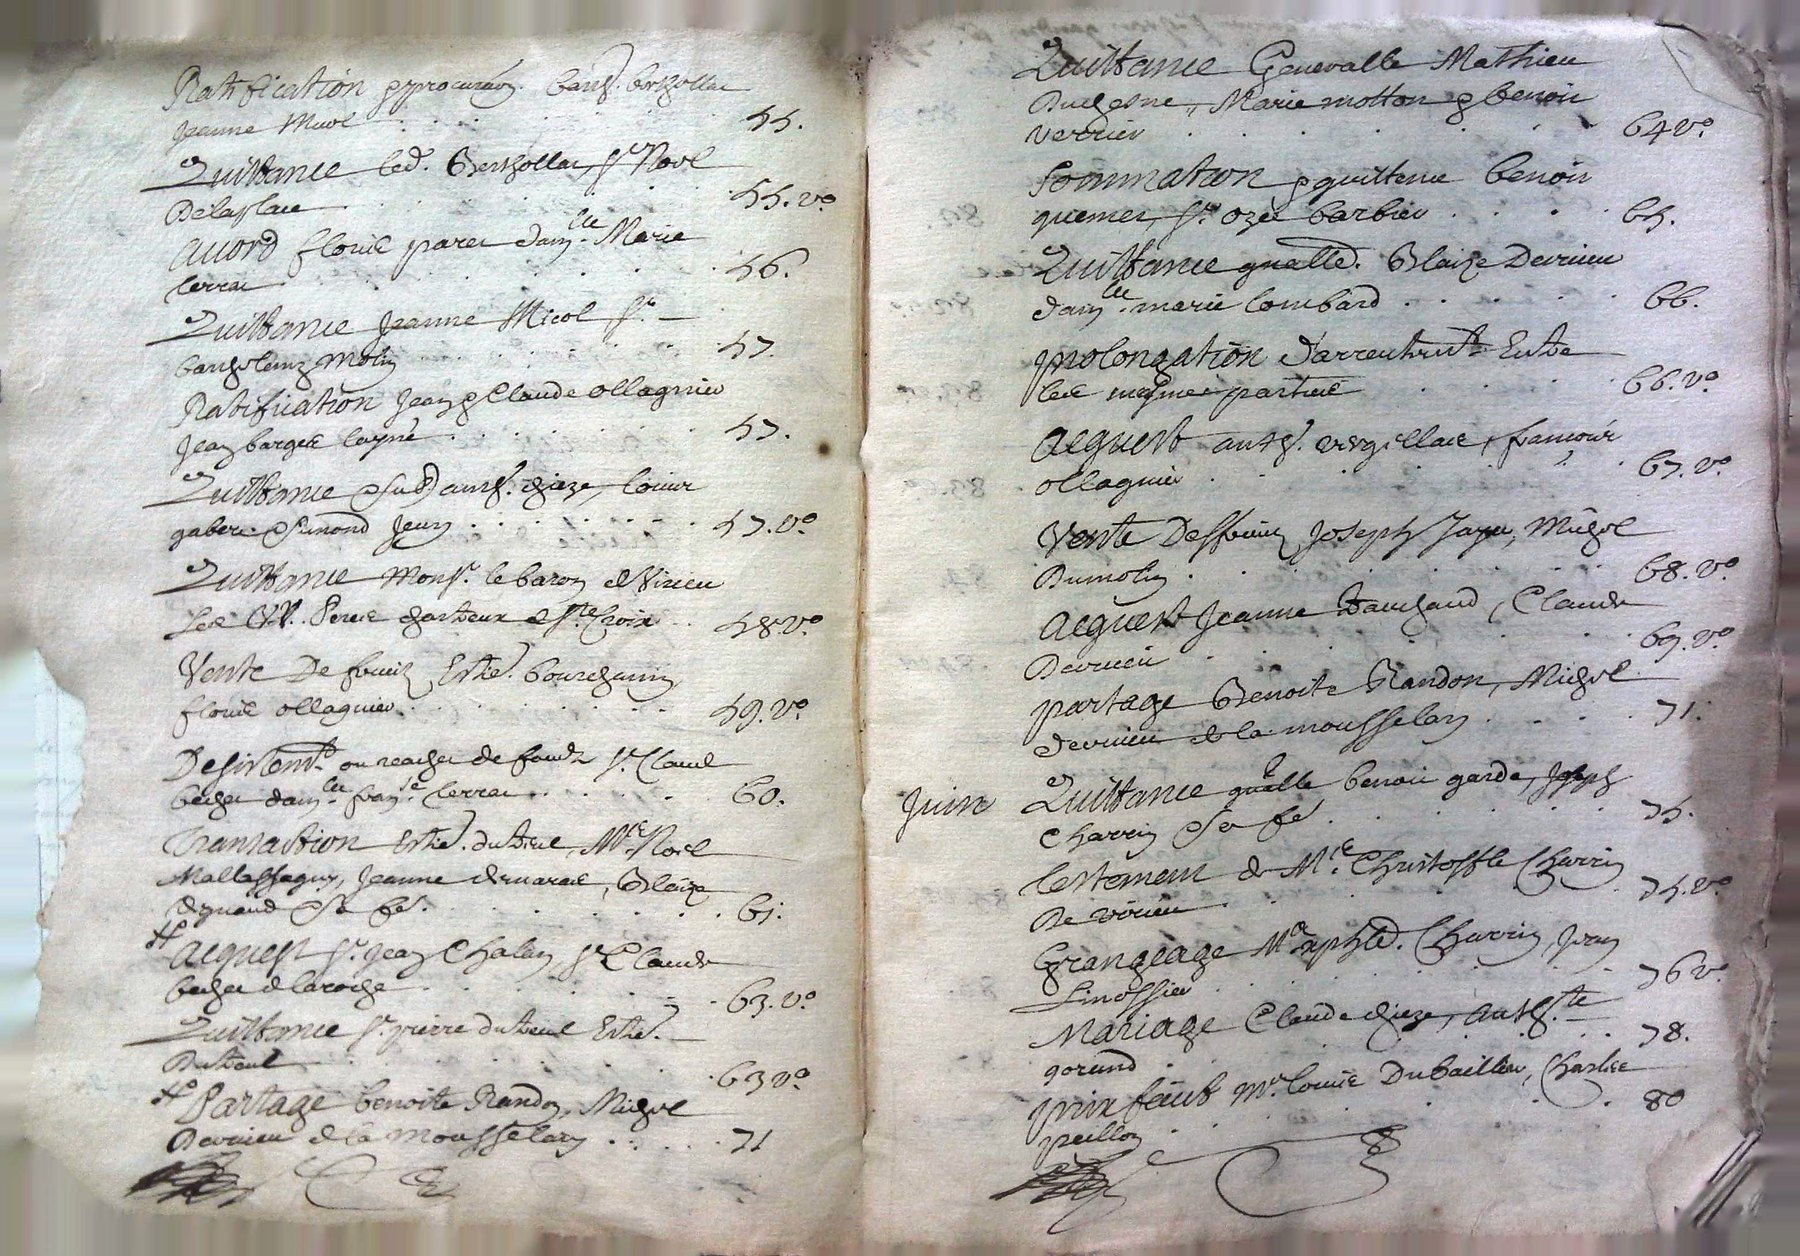 Ratification & procura^on. barth. berthollac
Jeanne Micol . . . 55.
Quittance led. Berthollac, s^r Noel
Delaplace . . . 55. v^o
Accord floris parer dam^lle Marie
terrac . . . 56.
Quittance Jeanne Micol s^r
barthelemy Molin . . . 57.
Ratification Jean & Claude ollagnier
Jean barges layné . . . 57.
Quittance anth. chieze, louis
gaberi Jean . . . 57. v^o
Quittance Mons^r. le baron de Virieu
les RR. Peres chartreux de S^te Croix . . . 58. v^o
Vente De fruits Estie. bourchanin
floris ollagnier . . . 59. v^o
Desistem^t. ou reachet de fondz s^r. Claude
becher dam^lle. fran^se terrac . . . 60.
Transaction Estie. duteul, M^re Noel
Mallassagny, Jeanne demarae, Blaize
Sa fe. . . . 61.
Acquest s^r. Jean Chalan, s^r Claude
becher de laroche . . . 63. v^o
Quittance s^r. pierre duteul Estie.
Duteul . . . 63 v^o
Partage benoite Randon, Michel
Dervieu de la Mousseliere . . . 71
Quittance Generalle Mathieu
Duchesne, Marie motton & benoit
verrier . . . 64 v^o.
Sommation & quittence benoit
quemer, s^r. ozée barbier . . . 65.
Quittance gnalle. Blaize Dervieu
dam^lle. marie lombard . . . 66.
prolongation d'arrentem^t. Entre
les mesmes parties . . . 66. v^o
Acquest anth. verzillac, francois
ollagnier . . . 67. v^o
Vente Desfruits Joseph Jayer, Michel
Dumolin . . . 68. v^o
Acquest Jeanne Dauchaud, Claude
Dervieu . . . 69. v^o
partage Benoite Randon, Michel
dervieu de la mousseliere . . . 71.
Juin Quittance gnalle benoit garde, Joseph
Charrin Sa fe . . . 75.
testement de M^re. Christoffle Charrin
De virieu . . . 75. v^o
Grangeage M^re xphle. Charrin, Jean
Linossier . . . 76 v^o
Mariage Claude chieze, Anth^tte
gorand . . . 78.
prix faict M^e. louis Dubaillon, Charles
peillon . . . 80